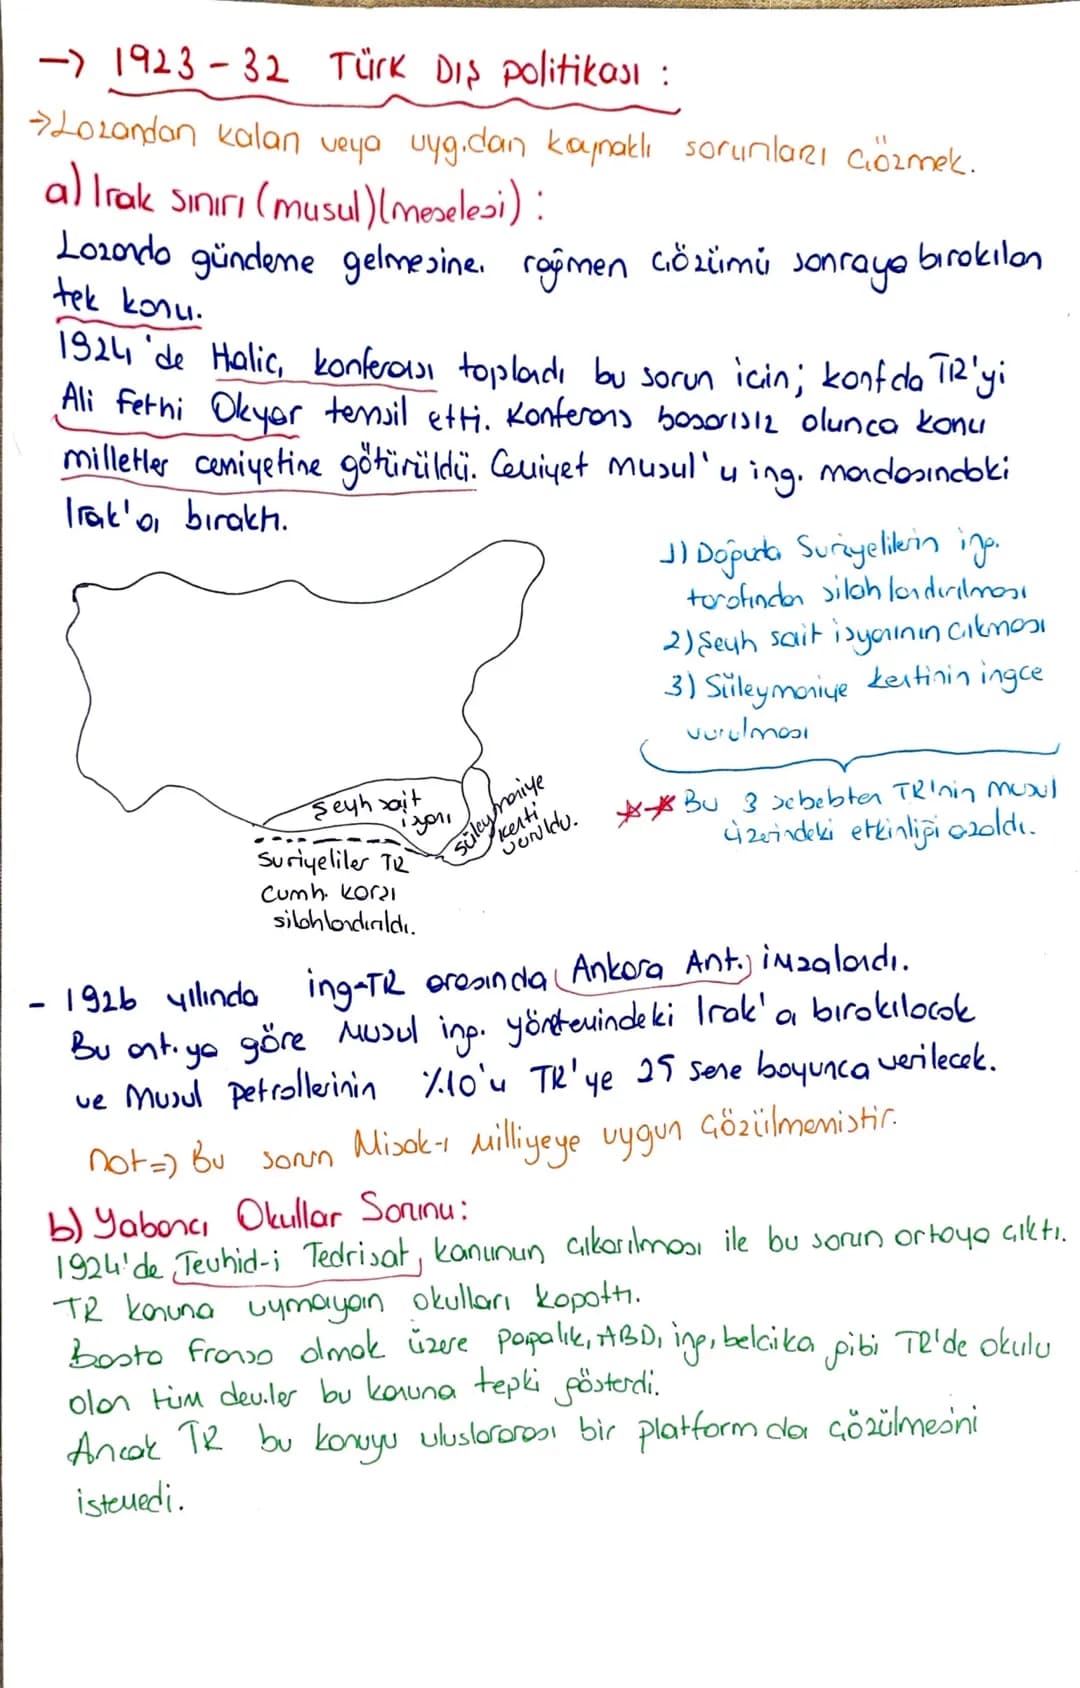 → 1923-32 Türk Dış politikası :
→Lozandan kalan veya uyg.dan kaynaklı sorunları çözmek.
a) Irak sınırı (musul)(meselesi) :
Lozanda gündeme gelmesine rağmen çözümü sonraya bırakılan
tek konu.
1924'de Haliç konferası toplandı bu sorun için; konfda TR'yi
Ali Fethi Okyar temsil etti. Konferans başarısız olunca konu
milletler cemiyetine götürüldü. Cemiyet musul'u ing. mandasındaki
Irak'a bıraktı.
1) Doğuda Suriyelilerin ing.
tarafından silahlandırılması
2) Şeyh sait isyanının çıkması
3) Süleymaniye kentinin ingce
vurulması
** Bu 3 sebebten TR'nin musul
üzerindeki etkinliği azaldı.
Şeyh sait
isyanı
süleymaniye
kenti
vuruldu.
Suriyeliler TR
Cumh. karşı
silahlandırıldı.
- 1926 yılında ing-TR arasında Ankara Ant. imzalandı.
Bu ant.ya göre Musul ing. yönetemindeki Irak'a bırakılacak
ve Musul Petrollerinin %10'u TR'ye 25 sene boyunca verilecek.
not=) Bu sorun Misak-ı Milliyeye uygun çözülmemiştir.
b) Yabancı Okullar Sorunu:
1924'de Tevhid-i Tedrisat kanunun çıkarılması ile bu sorun ortaya çıktı.
TR kanuna uymayan okulları kapattı.
Başta Fransa olmak üzere papalık, ABD, ing, belçika gibi TR'de okulu
olan tüm dev.ler bu kanuna tepki gösterdi.
Ancak TR bu konuyu uluslararası bir platformda çözülmesini
istemedi.